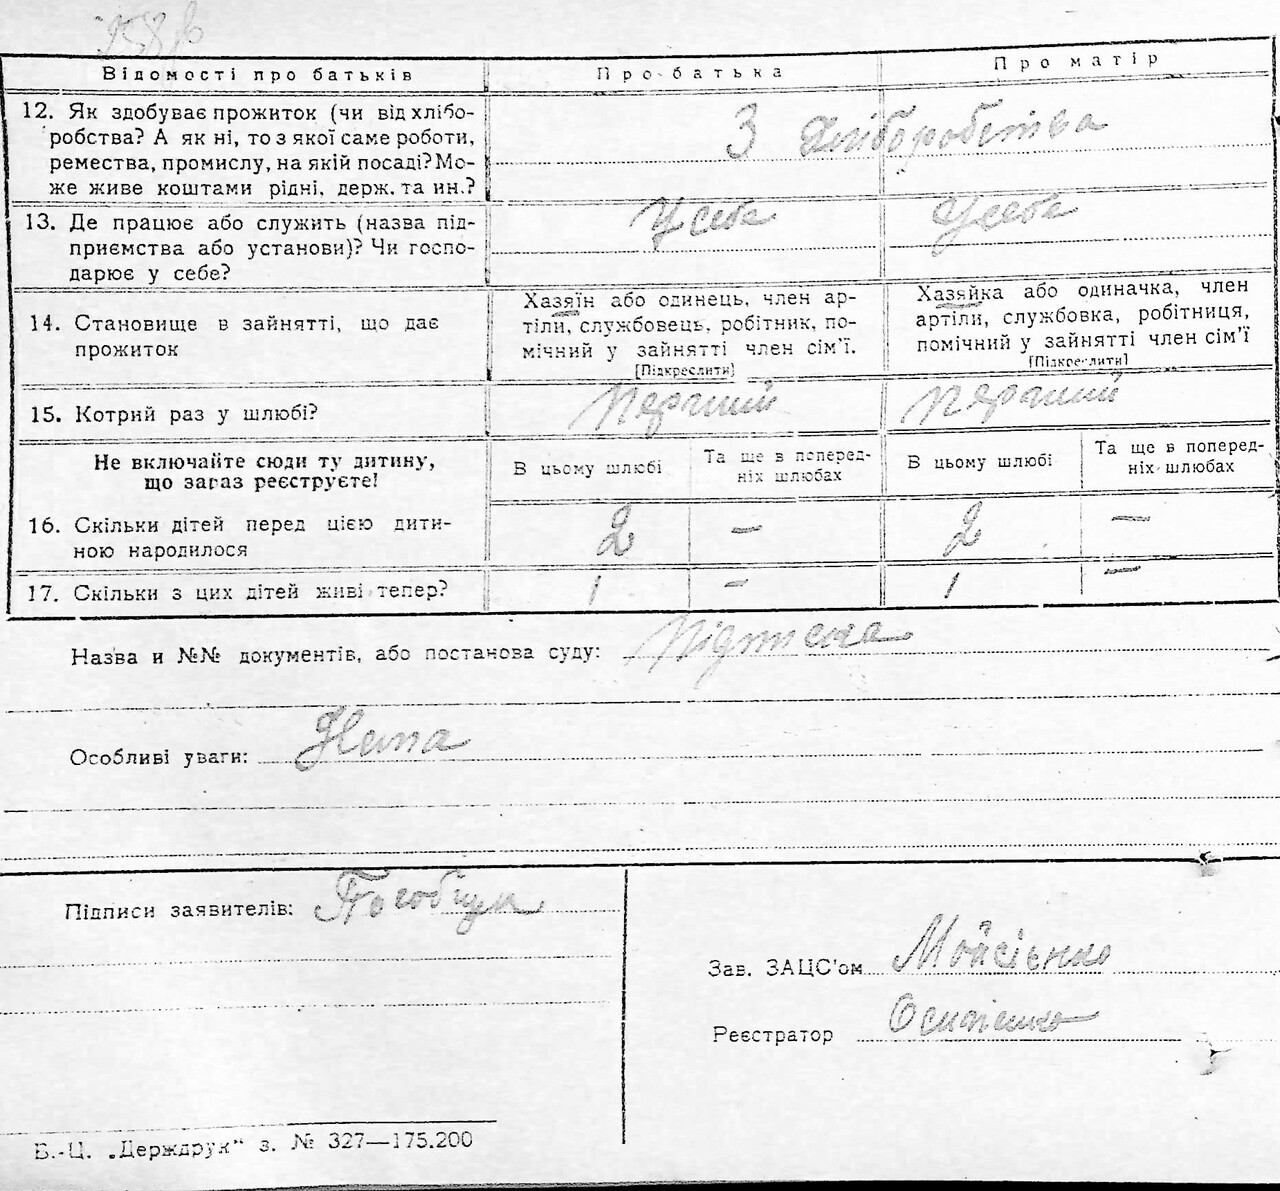 Відомості про батьків Про батька Про матір
12. Як здобуває прожиток (чи від хлібо-
робства? А як ні, то з якої саме роботи,
ремества, промислу, на якій посаді? Мо-
же живе коштами рідні, держ. та ин.?
З хліборобства
13. Де працює або служить (назва під-
приємства або установи)? Чи госпо-
дарює у себе?
У себе У себе
14. Становище в зайнятті, що дає
прожиток
Хазяїн або одинець, член ар-
тіли, службовець, робітник, по-
мічний у зайнятті член сім'ї.
[Підкреслити]
Хазяйка або одиначка, член
артіли, службовка, робітниця,
помічний у зайнятті член сім'ї
[Підкреслити]
15. Котрий раз у шлюбі? Перший Перший
Не включайте сюди ту дитину,
що зараз реєструєте!
В цьому шлюбі
Та ще в поперед-
ніх шлюбах
В цьому шлюбі
Та ще в поперед-
ніх шлюбах
16. Скільки дітей перед цією дити-
ною народилося
2 — 2 —
17. Скільки з цих дітей живі тепер? 1 — 1 —
Назва и №№ документів, або постанова суду: Підписка
Особливі уваги: Нема
Підписи заявителів:
Зав. ЗАЦС'ом Мойсієнко
Реєстратор Осипенко
Б.-Ц. „Держдрук" з. № 327—175.200